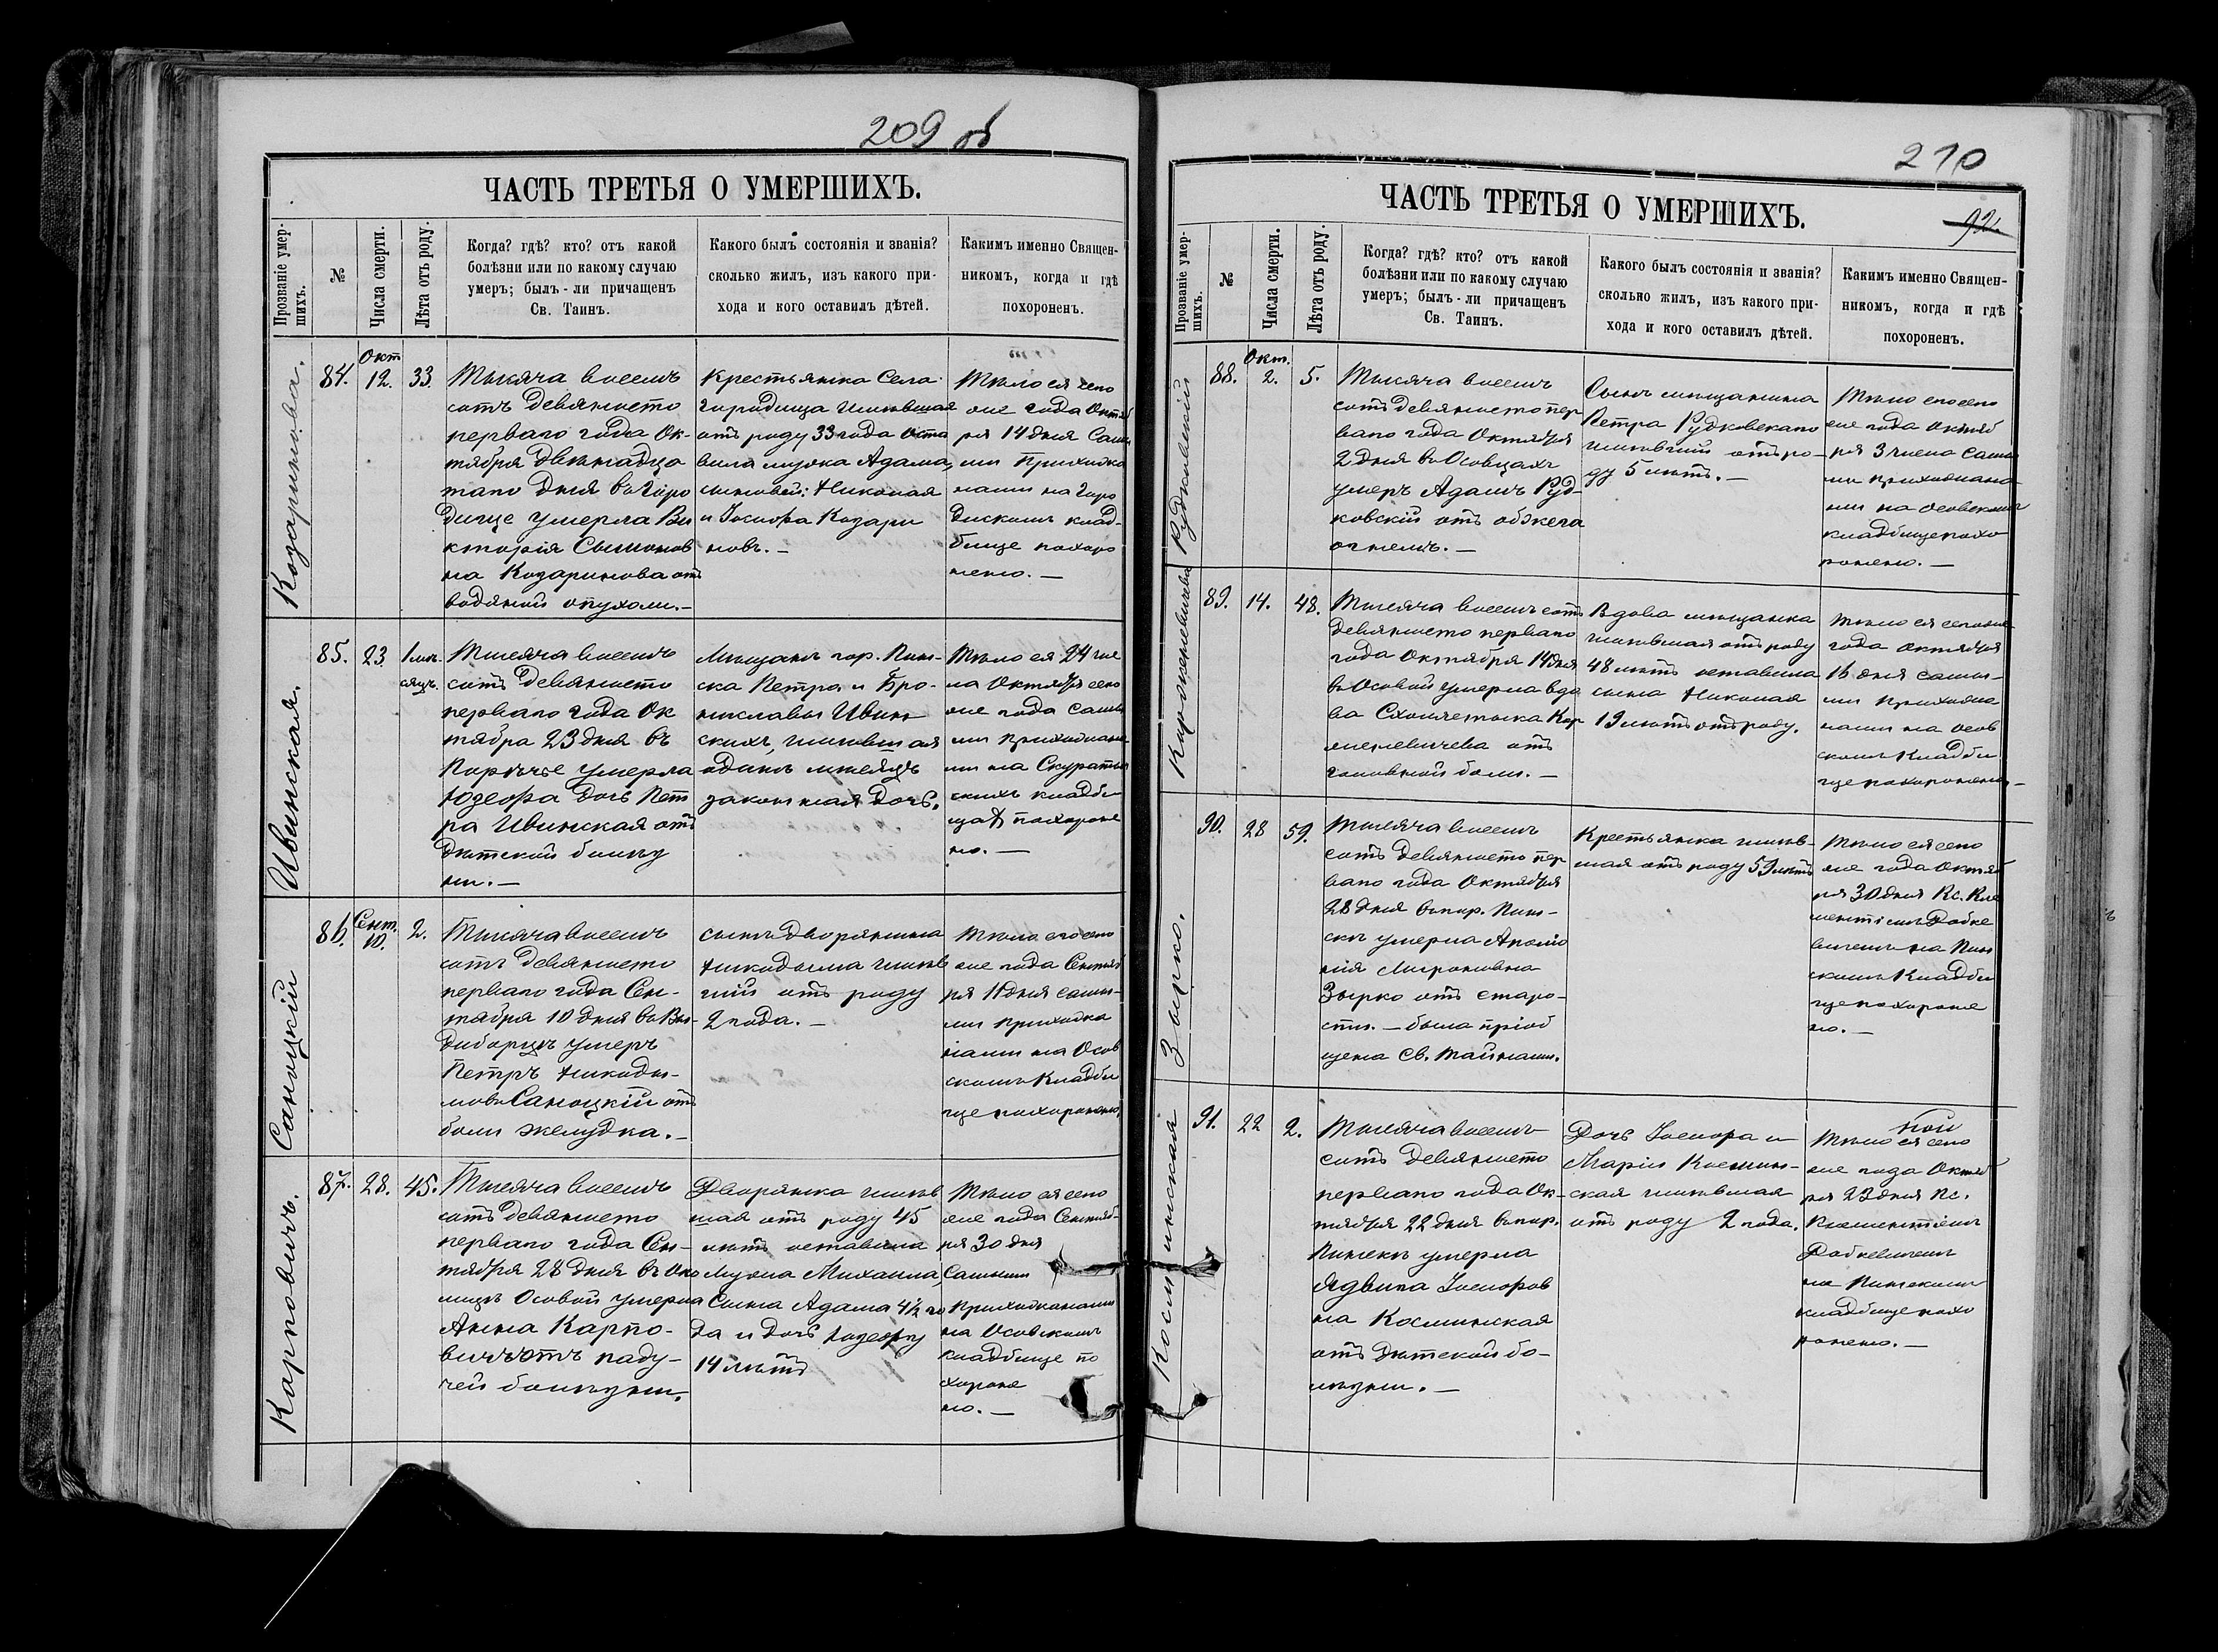 209 об
ЧАСТЬ ТРЕТЬЯ О УМЕРШИХЪ.
Прозваніе умер-
шихъ.
№
Числа смерти.
Лѣта отъ роду.
Когда? гдѣ? кто? отъ какой
болѣзни или по какому случаю
умеръ; былъ-ли причащенъ
Св. Таинъ.
Какого былъ состоянія и званія?
сколько жилъ, изъ какого при-
хода и кого оставилъ дѣтей.
Какимъ именно Священ-
никомъ, когда и гдѣ
похороненъ.
Козаринова.
84.
Окт
12.
33.
Тысяча восемь
сотъ девяносто
перваго года Ок-
тября двѣнадца
таго дня въ Горо
дище умерла Ви
кторія Сымонов
на Козаринова отъ
водяной опухоли.—
Крестьянка села
Городища жившая
отъ роду 33 года оста
вила мужа Адама,
сыновей: Николая
и Іосифа Козари
новъ.—
Тѣло ея сего
же года Октяб
ря 14 дня Самы
ми Прихожа
нами на Горо
дискомъ клад-
бище похоро
нено.—
Ивинская.
85.
23.
1 мѣ-
сяцъ.
Тысяча восемь
сотъ девяносто
перваго года Ок
тября 23 дня въ
Порѣчье умерла
Юзефа дочь Пет
ра Ивинская отъ
дѣтской болѣз
ни.—
Мѣщанъ гор. Пин-
ска Петра и Бро-
ниславы Ивин-
скихъ, жившая
одинъ мѣсяцъ
законная дочь.
Тѣло ея 24 чис
ла Октября сего
же года Самы
ми прихожана
ми на Скуратов
скихъ кладби
щахъ похороне
но.—
Саноцкій
86.
Сент.
10.
2.
Тысяча восемь
сотъ девяносто
перваго года Сен-
тября 10 дня въ Вы-
диборцѣ умеръ
Петръ Никоды-
мовъ Саноцкій отъ
боли желудка.—
сынъ дворянина
Никодыма жив
шій отъ роду
2 года.—
Тѣло его сего
же года Сентяб
ря 11 дня самы-
ми прихожа
нами на Осов
скомъ кладби
ще похоронено
Карповичъ.
87.
28.
45.
Тысяча восемь
сотъ девяносто
перваго года Сен-
тября 28 дня въ Око
лицѣ Особой умерла
Анна Карпо-
вичъ отъ паду-
чей болѣзни.
Дворянка жив
шая отъ роду 45
лѣтъ оставила
мужа Михаила,
сына Адама 4½ го
да и дочь Юзефу
14 лѣтъ
Тѣло ея сего
же года Сентяб-
ря 30 дня
Самыми
прихожанами
на Осовскомъ
кладбище по
хороне
но.—
210
ЧАСТЬ ТРЕТЬЯ О УМЕРШИХЪ.
92.
Прозваніе умер-
шихъ.
№
Числа смерти.
Лѣта отъ роду.
Когда? гдѣ? кто? отъ какой
болѣзни или по какому случаю
умеръ; былъ-ли причащенъ
Св. Таинъ.
Какого былъ состоянія и званія?
сколько жилъ, изъ какого при-
хода и кого оставилъ дѣтей.
Какимъ именно Священ-
никомъ, когда и гдѣ
похороненъ.
Рудковскій
88.
Окт.
2.
5.
Тысяча восемь
сотъ девяносто пер
ваго года Октября
2 дня въ Осовцахъ
умеръ Адамъ Руд-
ковскій отъ обжега
огнемъ.—
Сынъ мѣщанина
Петра Рудковскаго
жившій отъ ро-
ду 5 лѣтъ.—
Тѣло его сего
же года Октяб
ря 3 числа самы
ми прихожана
ми на Осовскомъ
кладбище похо
ронено.—
89.
14.
48.
Тысяча восемь сотъ
девяносто перваго
года Октября 14 дня
въ Особой умерла вдо
ва Схолястыка Кор
женевичева отъ
головной боли.—
Вдова мѣщанка
жившая отъ роду
48 лѣтъ оставила
сына Николая
19 лѣтъ отъ роду.
Тѣло ея сего же
года Октября
16 дня самы-
ми прихожа
нами на Осов
скомъ кладби
ще похоронено—
Зырко.
90.
28
59.
Тысяча восемь
сотъ девяносто пер
ваго года Октября
28 дня въ гор. Пин-
скѣ умерла Аполо
нія Мироновна
Зырко отъ старо-
сти.— была пріоб
щена Св. Тайнами.
Крестьянка жив-
шая отъ роду 59 лѣтъ
Тѣло ея сего
же года Октяб
ря 30 дня Кс. Кле
ментіемъ Добке
вичемъ на Пин
скомъ кладби
ще похороне
но.—
Косминская
91.
22
2.
Тысяча восемь
сотъ девяносто
перваго года Ок-
тября 22 дня въ гор.
Пинскѣ умерла
Ядвига Іосифов
на Косминская
отъ дѣтской бо-
лѣзни.—
Дочь Іосифа и
Маріи Космин-
ская жившая
отъ роду 2 года.
Тѣло ея сего
же года Октяб
ря 23 дня Кс.
Клементіемъ
Добкевичемъ
на Пинскомъ
кладбище похо
ронено.—